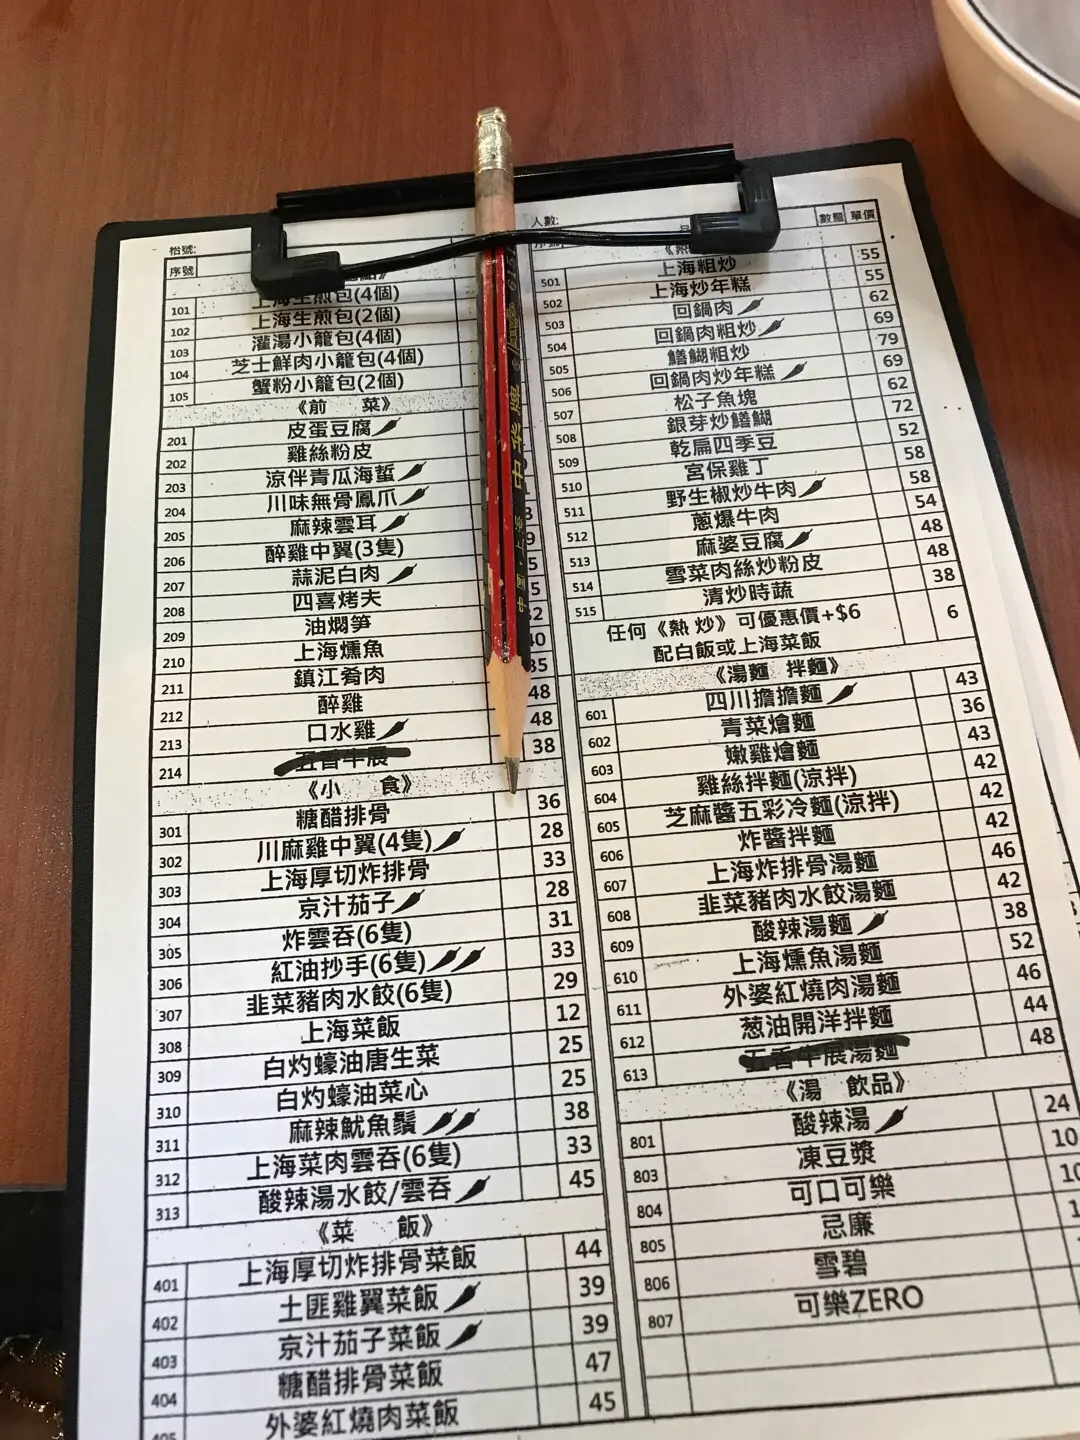 枱號:
序號
101 上海生煎包(4個)
102 上海生煎包(2個)
103 灌湯小籠包(4個)
104 芝士鮮肉小籠包(4個)
105 蟹粉小籠包(2個)
《前 菜》
201 皮蛋豆腐
202 雞絲粉皮
203 涼伴青瓜海蜇
204 川味無骨鳳爪
205 麻辣雲耳
206 醉雞中翼(3隻)
207 蒜泥白肉
208 四喜烤夫
209 油燜筍
210 上海燻魚
211 鎮江肴肉
212 醉雞 48
213 口水雞 48
214 五香牛展 38
《小 食》
301 糖醋排骨 36
302 川麻雞中翼(4隻) 28
303 上海厚切炸排骨 33
304 京汁茄子 28
305 炸雲吞(6隻) 31
306 紅油抄手(6隻) 33
307 韭菜豬肉水餃(6隻) 29
308 上海菜飯 12
309 白灼蠔油唐生菜 25
310 白灼蠔油菜心 25
311 麻辣魷魚鬚 38
312 上海菜肉雲吞(6隻) 33
313 酸辣湯水餃/雲吞 45
《菜 飯》
401 上海厚切炸排骨菜飯 44
402 土匪雞翼菜飯 39
403 京汁茄子菜飯 39
404 糖醋排骨菜飯 47
405 外婆紅燒肉菜飯 45
人數:
數量 單價
501 上海粗炒 55
502 上海炒年糕 55
503 回鍋肉 62
504 回鍋肉粗炒 69
505 鱔鰗粗炒 79
506 回鍋肉炒年糕 69
507 松子魚塊 62
508 銀芽炒鱔鰗 72
509 乾扁四季豆 52
510 宮保雞丁 58
511 野生椒炒牛肉 58
512 蔥爆牛肉 54
513 麻婆豆腐 48
514 雪菜肉絲炒粉皮 48
515 清炒時蔬 38
任何《熱 炒》可優惠價+$6 6
配白飯或上海菜飯
《湯麵 拌麵》
601 四川擔擔麵 43
602 青菜燴麵 36
603 嫩雞燴麵 43
604 雞絲拌麵(涼拌) 42
605 芝麻醬五彩冷麵(涼拌) 42
606 炸醬拌麵 42
607 上海炸排骨湯麵 46
608 韭菜豬肉水餃湯麵 42
609 酸辣湯麵 38
610 上海燻魚湯麵 52
611 外婆紅燒肉湯麵 46
612 葱油開洋拌麵 44
613 五香牛展湯麵 48
《湯 飲品》
801 酸辣湯 24
803 凍豆漿 10
804 可口可樂
805 忌廉
806 雪碧
807 可樂ZERO
中華牌
中國·上海